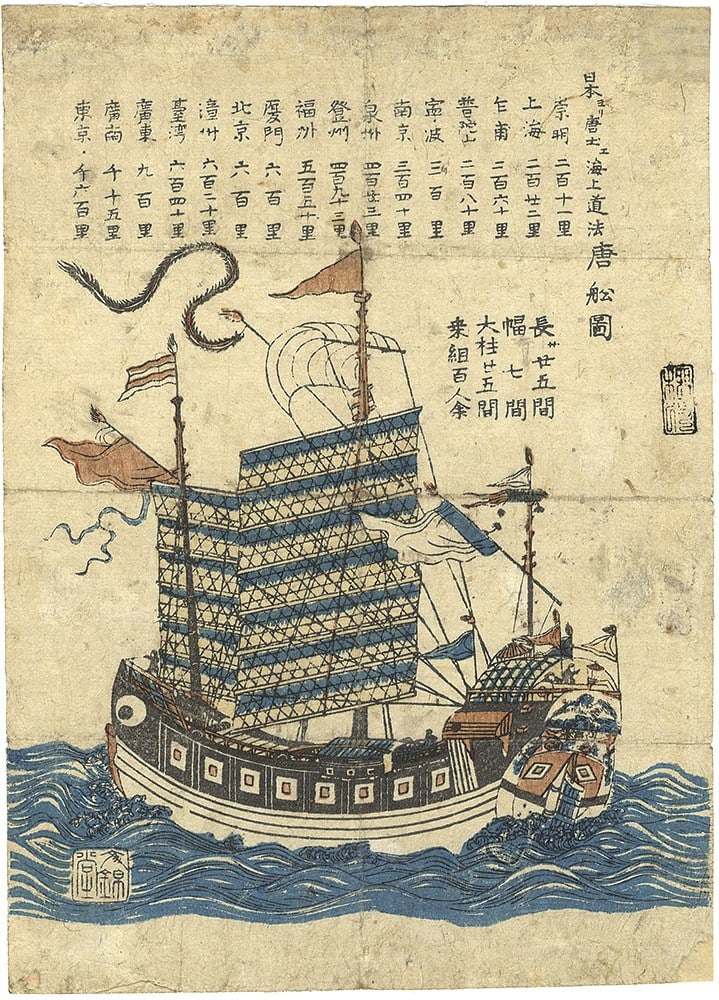 日本ヨリ唐土エ海上道法 唐舩圖
崇明 二百十一里
上海 二百廿二里
乍甫 二百六十里
普陀山 二百八十里
寧波 三百里
南京 三百四十里
泉州 四百廿三里
登州 四百九十三里
福州 五百五十里
厦門 六百里
北京 六百里
漳州 六百二十里
臺湾 六百四十里
廣東 九百里
廣南 千十五里
東京 千六百里
長サ廿五間
幅七間
大柱廿五間
乗組百人余
文錦堂